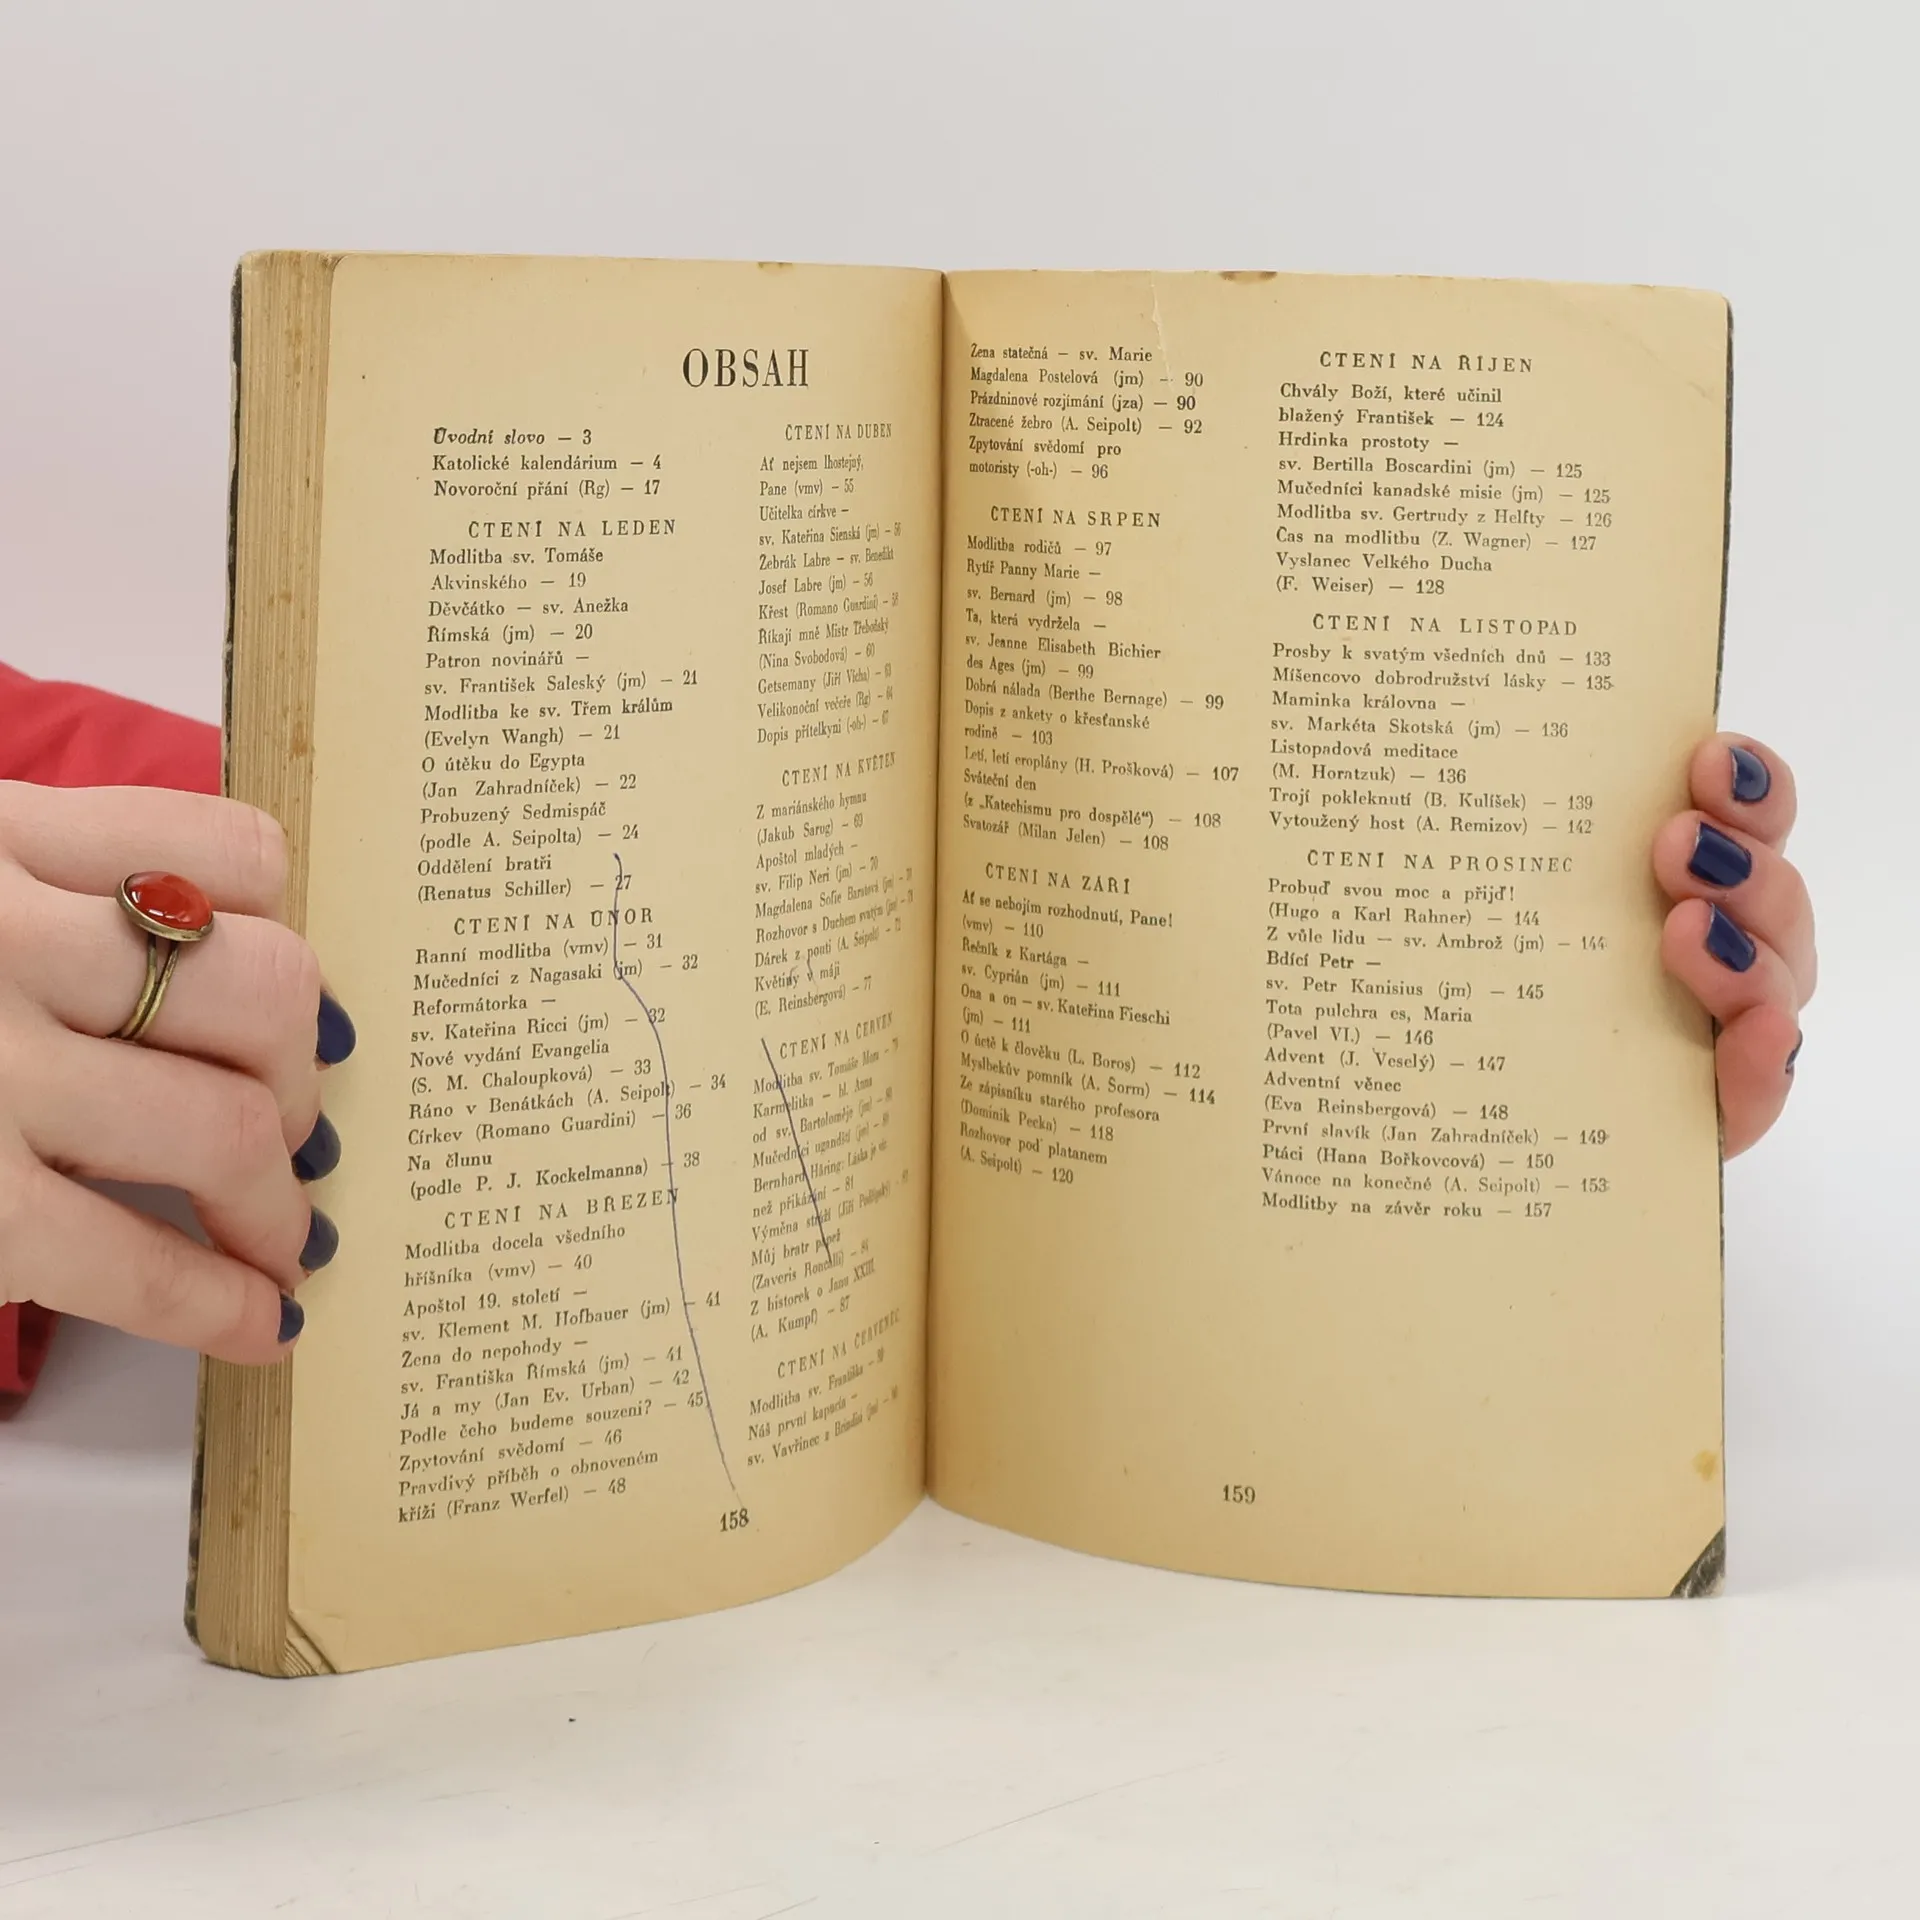 OBSAH
Úvodní slovo — 3
Katolické kalendárium — 4
Novoroční přání (Rg) — 17
ČTENÍ NA LEDEN
Modlitba sv. Tomáše
Akvinského — 19
Děvčátko — sv. Anežka
Římská (jm) — 20
Patron novinářů —
sv. František Saleský (jm) — 21
Modlitba ke sv. Třem králům
(Evelyn Wangh) — 21
O útěku do Egypta
(Jan Zahradníček) — 22
Probuzený Sedmispáč
(podle A. Seipolta) — 24
Oddělení bratři
(Renatus Schiller) — 27
ČTENÍ NA ÚNOR
Ranní modlitba (vmv) — 31
Mučedníci z Nagasaki (jm) — 32
Reformátorka —
sv. Kateřina Ricci (jm) — 32
Nové vydání Evangelia
(S. M. Chaloupková) — 33
Ráno v Benátkách (A. Seipolt) — 34
Církev (Romano Guardini) — 36
Na člunu
(podle P. J. Kockelmanna) — 38
ČTENÍ NA BŘEZEN
Modlitba docela všedního
hříšníka (vmv) — 40
Apoštol 19. století —
sv. Klement M. Hofbauer (jm) — 41
Žena do nepohody —
sv. Františka Římská (jm) — 41
Já a my (Jan Ev. Urban) — 42
Podle čeho budeme souzeni? — 45
Zpytování svědomí — 46
Pravdivý příběh o obnoveném
kříži (Franz Werfel) — 48
ČTENÍ NA DUBEN
Ať nejsem lhostejný,
Pane (vmv) — 55
Učitelka církve —
sv. Kateřina Sienská (jm) — 56
Žebrák Labre — sv. Benedikt
Josef Labre (jm) — 56
Křest (Romano Guardini) — 58
Říkají mně Mistr Třeboňský
(Nina Svobodová) — 60
Getsemany (Jiří Vícha) — 63
Velikonoční večeře (Rg) — 64
Dopis přítelkyni (-oh-) — 67
ČTENÍ NA KVĚTEN
Z mariánského hymnu
(Jakub Sarug) — 69
Apoštol mladých —
sv. Filip Neri (jm) — 70
Magdalena Sofie Baratová (jm) —
Rozhovor s Duchem svatým (jm) —
Dárek z pouti (A. Seipolt) — 72
Květiny v máji
(E. Reinsbergová) — 77
ČTENÍ NA ČERVEN
Modlitba sv. Tomáše Mora —
Karmelitka — bl. Anna
od sv. Bartoloměje (jm) — 80
Mučedníci ugandští (jm) — 80
Bernhard Häring: Láska je víc
než přikázání — 81
Výměna stráží (Jiří
Můj bratr papež
(Zaveris Roncalli) — 84
Z historek o Janu XXIII.
(A. Kumpf) — 87
ČTENÍ NA ČERVENEC
Modlitba sv. Františka —
Náš první kapucín —
sv. Vavřinec z Brindisi (jm) — 90
158
Žena statečná — sv. Marie
Magdalena Postelová (jm) — 90
Prázdninové rozjímání (jza) — 90
Ztracené žebro (A. Seipolt) — 92
Zpytování svědomí pro
motoristy (-oh-) — 96
ČTENÍ NA SRPEN
Modlitba rodičů — 97
Rytíř Panny Marie —
sv. Bernard (jm) — 98
Ta, která vydržela —
sv. Jeanne Elisabeth Bichier
des Ages (jm) — 99
Dobrá nálada (Berthe Bernage) — 99
Dopis z ankety o křesťanské
rodině — 103
Letí, letí eroplány (H. Prošková) — 107
Sváteční den
(z „Katechismu pro dospělé“) — 108
Svatozář (Milan Jelen) — 108
ČTENÍ NA ZÁŘÍ
Ať se nebojím rozhodnutí, Pane!
(vmv) — 110
Řečník z Kartága —
sv. Cyprián (jm) — 111
Ona a on — sv. Kateřina Fieschi
(jm) — 111
O úctě k člověku (L. Boros) — 112
Myslbekův pomník (A. Šorm) — 114
Ze zápisníku starého profesora
(Dominik Pecka) — 118
Rozhovor pod platanem
(A. Seipolt) — 120
ČTENÍ NA ŘÍJEN
Chvály Boží, které učinil
blažený František — 124
Hrdinka prostoty —
sv. Bertilla Boscardini (jm) — 125
Mučedníci kanadské misie (jm) — 125
Modlitba sv. Gertrudy z Helfty — 126
Čas na modlitbu (Z. Wagner) — 127
Vyslanec Velkého Ducha
(F. Weiser) — 128
ČTENÍ NA LISTOPAD
Prosby k svatým všedních dnů — 133
Míšencovo dobrodružství lásky — 135
Maminka královna —
sv. Markéta Skotská (jm) — 136
Listopadová meditace
(M. Horatzuk) — 136
Trojí pokleknutí (B. Kulíšek) — 139
Vytoužený host (A. Remizov) — 142
ČTENÍ NA PROSINEC
Probuď svou moc a přijď!
(Hugo a Karl Rahner) — 144
Z vůle lidu — sv. Ambrož (jm) — 144
Bdící Petr —
sv. Petr Kanisius (jm) — 145
Tota pulchra es, Maria
(Pavel VI.) — 146
Advent (J. Veselý) — 147
Adventní věnec
(Eva Reinsbergová) — 148
První slavík (Jan Zahradníček) — 149
Ptáci (Hana Bořkovcová) — 150
Vánoce na konečné (A. Seipolt) — 153
Modlitby na závěr roku — 157
159